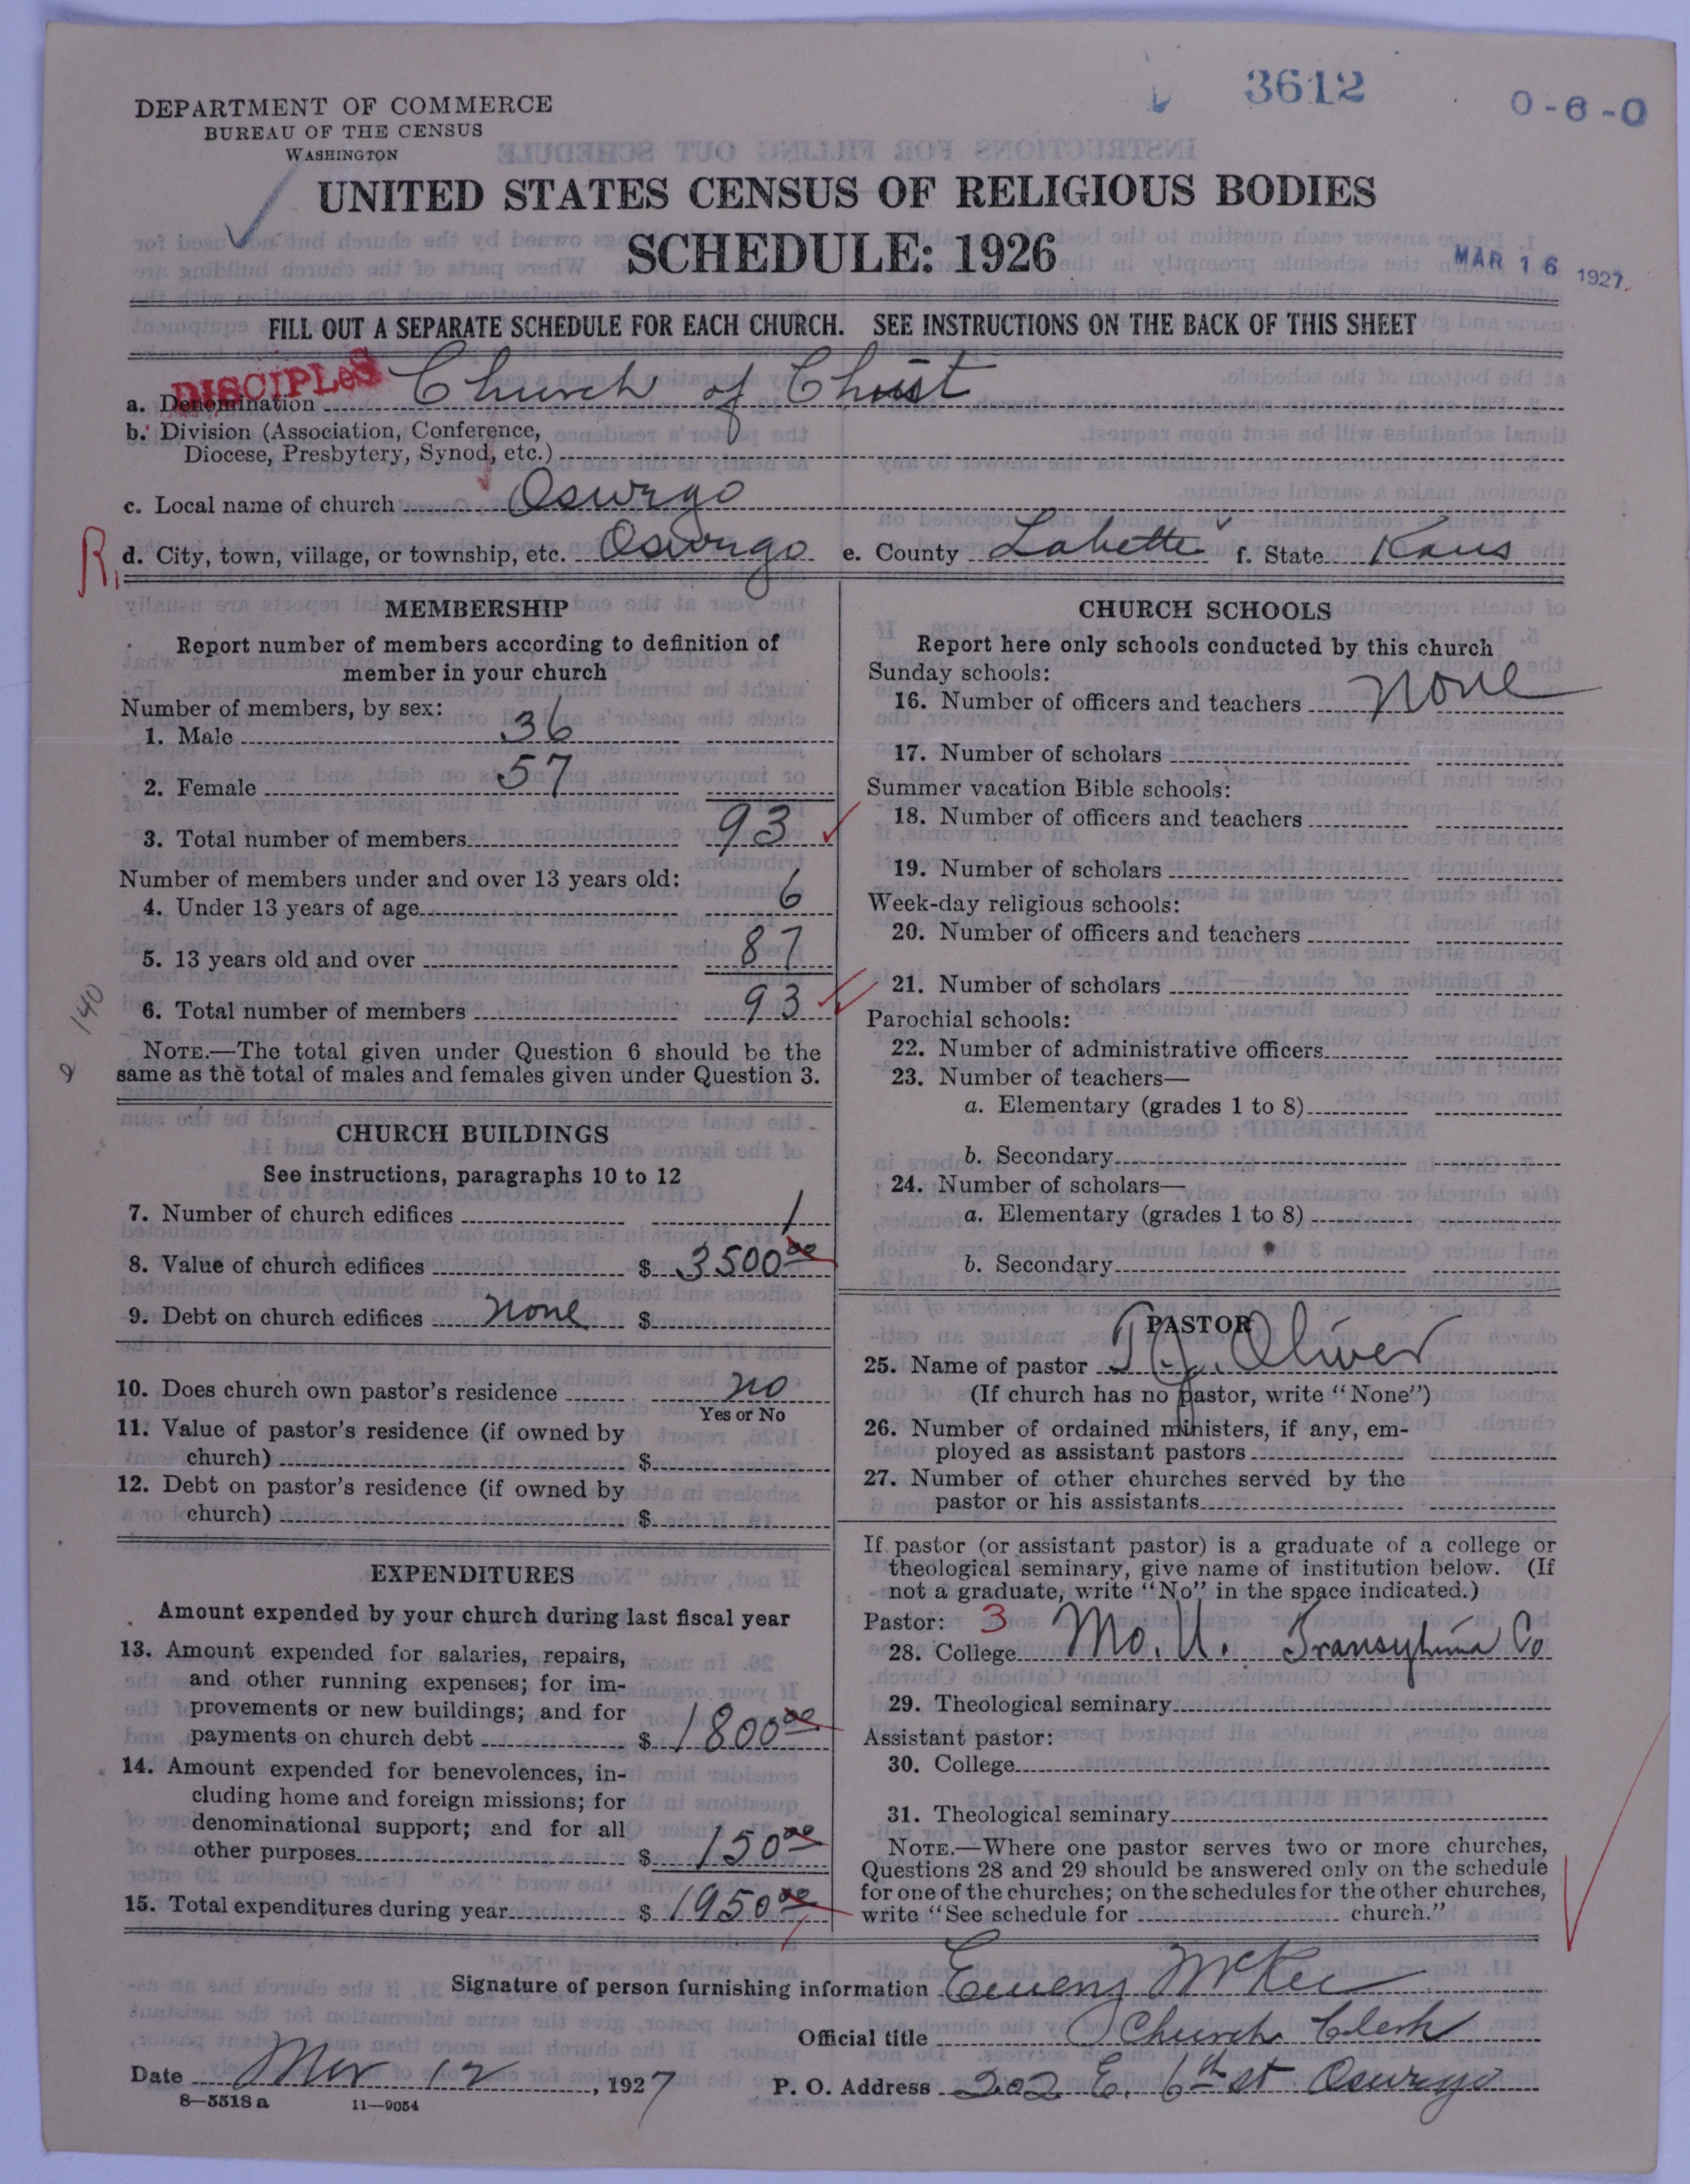 3612
0-6-0
DEPARTMENT OF COMMERCE
BUREAU OF THE CENSUS
WASHINGTON
UNITED STATES CENSUS OF RELIGIOUS BODIES
SCHEDULE: 1926
MAR 16 1927
FILL OUT A SEPARATE SCHEDULE FOR EACH CHURCH. SEE INSTRUCTIONS ON THE BACK OF THIS SHEET
DISCIPLeS
a. Denomination Church of Christ
b. Division (Association, Conference,
Diocese, Presbytery, Synod, etc.)
c. Local name of church Oswego
R, d. City, town, village, or township, etc. Oswego e. County Labette f. State Kans
MEMBERSHIP
Report number of members according to definition of
member in your church
Number of members, by sex:
1. Male 36
2. Female 57
3. Total number of members 93
Number of members under and over 13 years old:
4. Under 13 years of age 6
5. 13 years old and over 87
6. Total number of members 93
140
NOTE.—The total given under Question 6 should be the
same as the total of males and females given under Question 3.
CHURCH BUILDINGS
See instructions, paragraphs 10 to 12
7. Number of church edifices 1
8. Value of church edifices $ 3500 00
9. Debt on church edifices none $
10. Does church own pastor's residence no
Yes or No
11. Value of pastor's residence (if owned by
church) $
12. Debt on pastor's residence (if owned by
church) $
EXPENDITURES
Amount expended by your church during last fiscal year
13. Amount expended for salaries, repairs,
and other running expenses; for im-
provements or new buildings; and for
payments on church debt $ 1800 00
14. Amount expended for benevolences, in-
cluding home and foreign missions; for
denominational support; and for all
other purposes $ 150 00
15. Total expenditures during year $ 1950 00
CHURCH SCHOOLS
Report here only schools conducted by this church
Sunday schools:
16. Number of officers and teachers none
17. Number of scholars
Summer vacation Bible schools:
18. Number of officers and teachers
19. Number of scholars
Week-day religious schools:
20. Number of officers and teachers
21. Number of scholars
Parochial schools:
22. Number of administrative officers
23. Number of teachers—
a. Elementary (grades 1 to 8)
b. Secondary
24. Number of scholars—
a. Elementary (grades 1 to 8)
b. Secondary
PASTOR
25. Name of pastor Oliver
(If church has no pastor, write "None")
26. Number of ordained ministers, if any, em-
ployed as assistant pastors
27. Number of other churches served by the
pastor or his assistants
If pastor (or assistant pastor) is a graduate of a college or
theological seminary, give name of institution below. (If
not a graduate, write "No" in the space indicated.)
Pastor: 3
28. College Mo. U. Co
29. Theological seminary
Assistant pastor:
30. College
31. Theological seminary
NOTE.—Where one pastor serves two or more churches,
Questions 28 and 29 should be answered only on the schedule
for one of the churches; on the schedules for the other churches,
write "See schedule for church."
Signature of person furnishing information McKee
Official title Church Clerk
Date Mar 12, 1927 P. O. Address 202 E. 6th st Oswego
8—5518 a 11—9054